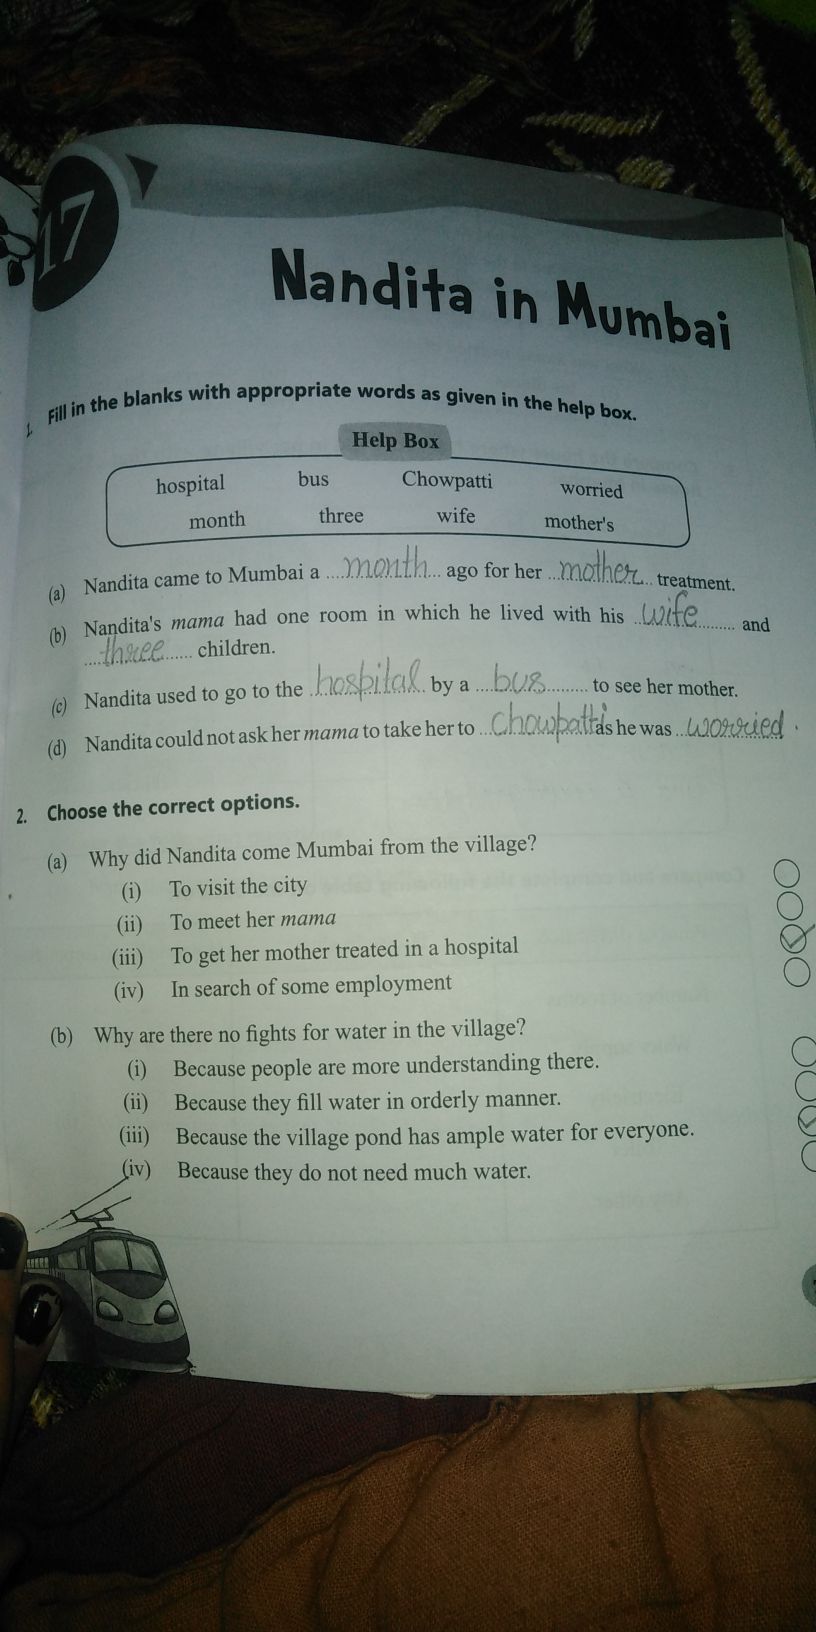 17
Nandita in Mumbai
1. Fill in the blanks with appropriate words as given in the help box.
Help Box
hospital bus Chowpatti worried
month three wife mother's
(a) Nandita came to Mumbai a ...month... ago for her ...mother... treatment.
(b) Nandita's mama had one room in which he lived with his ...wife... and
...three... children.
(c) Nandita used to go to the ...hospital... by a ...bus... to see her mother.
(d) Nandita could not ask her mama to take her to ...Chowpatti as he was ...worried.
2. Choose the correct options.
(a) Why did Nandita come Mumbai from the village?
(i) To visit the city
(ii) To meet her mama
(iii) To get her mother treated in a hospital
(iv) In search of some employment
(b) Why are there no fights for water in the village?
(i) Because people are more understanding there.
(ii) Because they fill water in orderly manner.
(iii) Because the village pond has ample water for everyone.
(iv) Because they do not need much water.